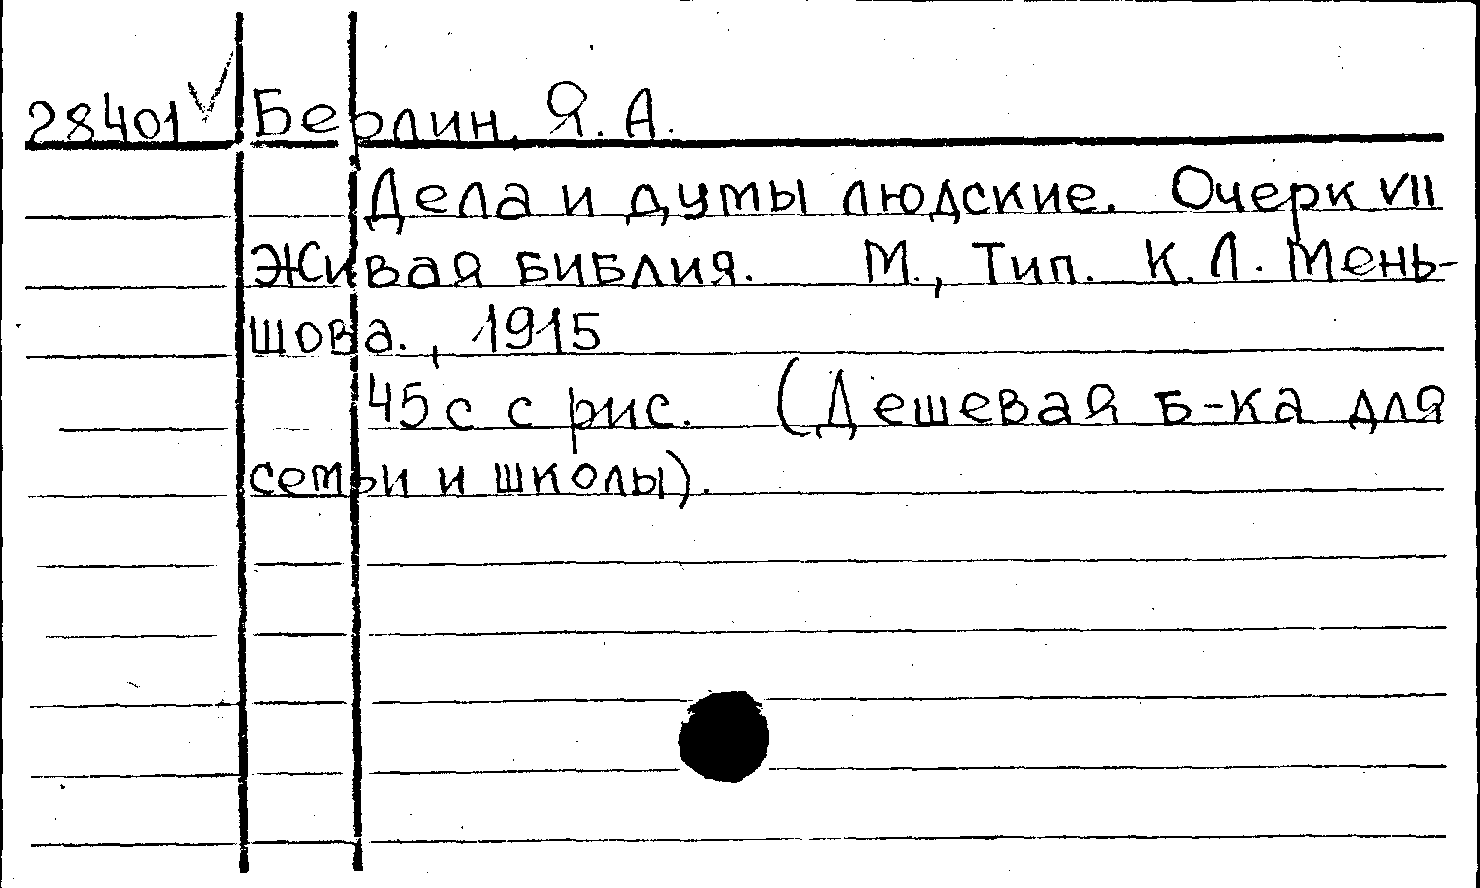 28401 √ Берлин, Я. А.
Дела и думы людские. Очерк VII
Живая библия. М., Тип. К. Л. Мень-
шова., 1915
45 с с рис. (Дешевая б-ка для
семьи и школы).